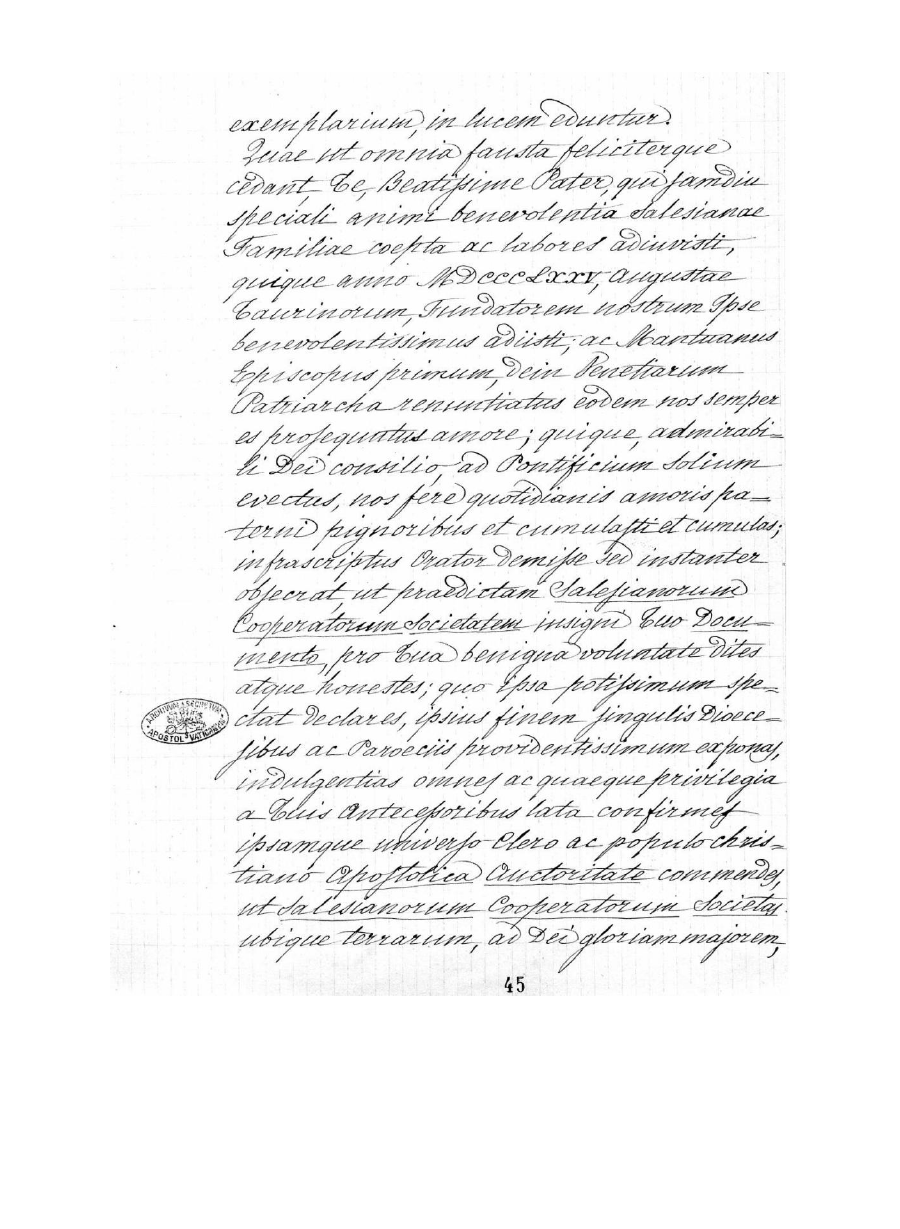 exemplarium, in lucem eduntur.
Quae ut omnia fausta feliciterque
cedant, Te, Beatissime Pater, qui jamdiu
speciali animi benevolentia Salesianae
Familiae coepta ac labores adiuvisti,
quique anno MDCCCLXXV, Augustae
Taurinorum, Fundatorem nostrum Ipse
benevolentissimus adiisti, ac Mantuanus
Episcopus primum, dein Venetiarum
Patriarcha renuntiatus eodem nos semper
es prosequutus amore; quique, admirabi=
li Dei consilio, ad Pontificium Solium
evectus, nos fere quotidianis amoris pa=
terni pignoribus et cumulasti et cumulas;
infrascriptus Orator demisse sed instanter
obsecrat, ut praedictam Salesianorum
Cooperatorum Societatem insigni Tuo Docu=
mento, pro Tua benigna voluntate dites
atque honestes; quo ipsa potissimum spe=
ctat declares, ipsius finem singulis Dioece=
sibus ac Paroeciis providentissimum exponas,
indulgentias omnes ac quaeque privilegia
a Tuis Antecessoribus lata confirmes
ipsamque universo Clero ac populo chris=
tiano Apostolica Auctoritate commendes,
ut Salesianorum Cooperatorum Societas
ubique terrarum, ad Dei gloriam majorem,
ARCHIVUM SECRETUM
APOSTOL. VATICANUM
45